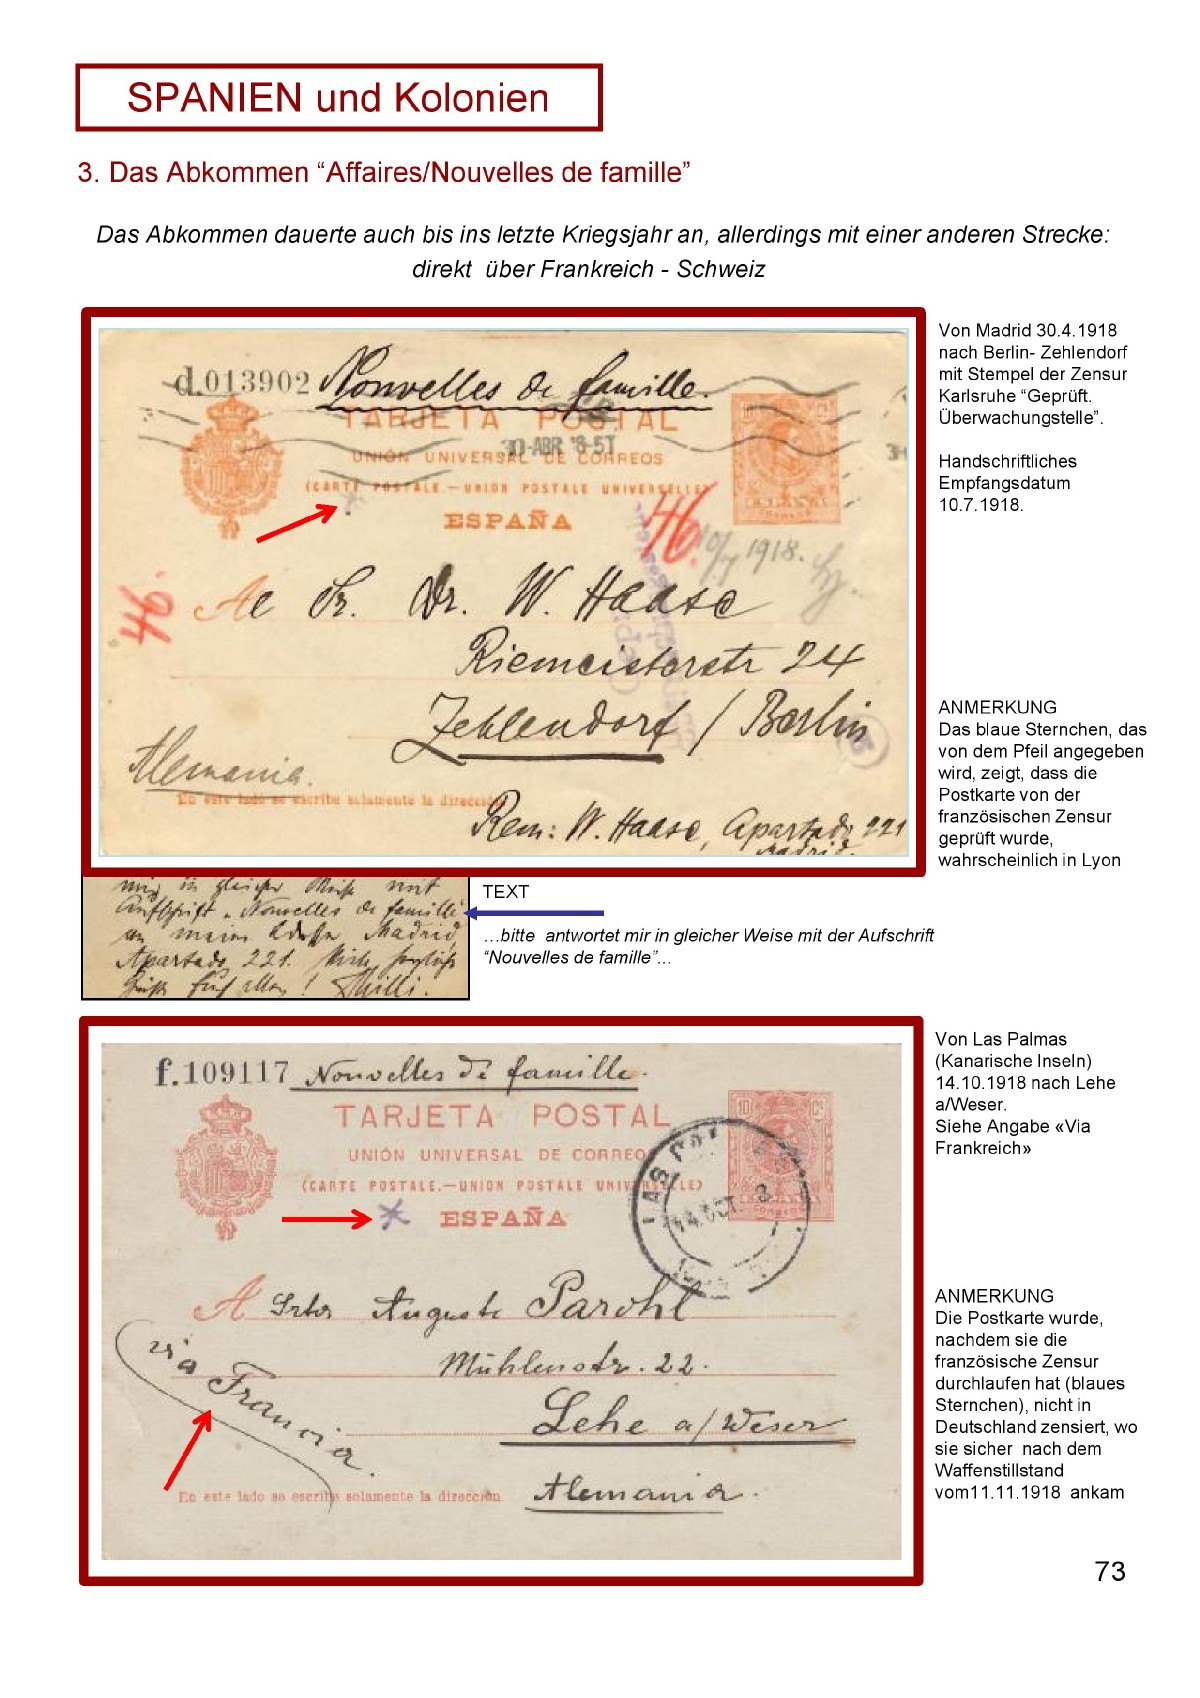 SPANIEN und Kolonien
3. Das Abkommen “Affaires/Nouvelles de famille”
Das Abkommen dauerte auch bis ins letzte Kriegsjahr an, allerdings mit einer anderen Strecke:
direkt über Frankreich - Schweiz
d.013902 Nouvelles de famille.
TARJETA POSTAL
30 ABR
UNIÓN UNIVERSAL DE CORREOS
(CARTE POSTALE.—UNION POSTALE UNIVERSELLE)
ESPAÑA
46.
10/7 1918.
46.
A Sr. Dr. W. Haase
Riemeisterstr 24
Zehlendorf / Berlin
Alemania.
En este lado se escribe solamente la dirección
Rem: W. Haase, Apartado 221
Madrid.
Von Madrid 30.4.1918
nach Berlin- Zehlendorf
mit Stempel der Zensur
Karlsruhe “Geprüft.
Überwachungstelle”.
Handschriftliches
Empfangsdatum
10.7.1918.
ANMERKUNG
Das blaue Sternchen, das
von dem Pfeil angegeben
wird, zeigt, dass die
Postkarte von der
französischen Zensur
geprüft wurde,
wahrscheinlich in Lyon
mir in gleicher Weise mit
Aufschrift „Nouvelles de famille“
an meine Madrid,
Apartado 221.
TEXT
...bitte antwortet mir in gleicher Weise mit der Aufschrift
“Nouvelles de famille”...
f.109117 Nouvelles de famille.
TARJETA POSTAL
10 Cs
UNIÓN UNIVERSAL DE CORREOS
(CARTE POSTALE.—UNION POSTALE UNIVERSELLE)
ESPAÑA
LAS PAL
14 OCT. 8
A Srta Auguste Parohl
Mühlenstr. 22.
Lehe a/Weser
via Francia.
En este lado se escribe solamente la dirección
Alemania.
Von Las Palmas
(Kanarische Inseln)
14.10.1918 nach Lehe
a/Weser.
Siehe Angabe «Via
Frankreich»
ANMERKUNG
Die Postkarte wurde,
nachdem sie die
französische Zensur
durchlaufen hat (blaues
Sternchen), nicht in
Deutschland zensiert, wo
sie sicher nach dem
Waffenstillstand
vom11.11.1918 ankam
73